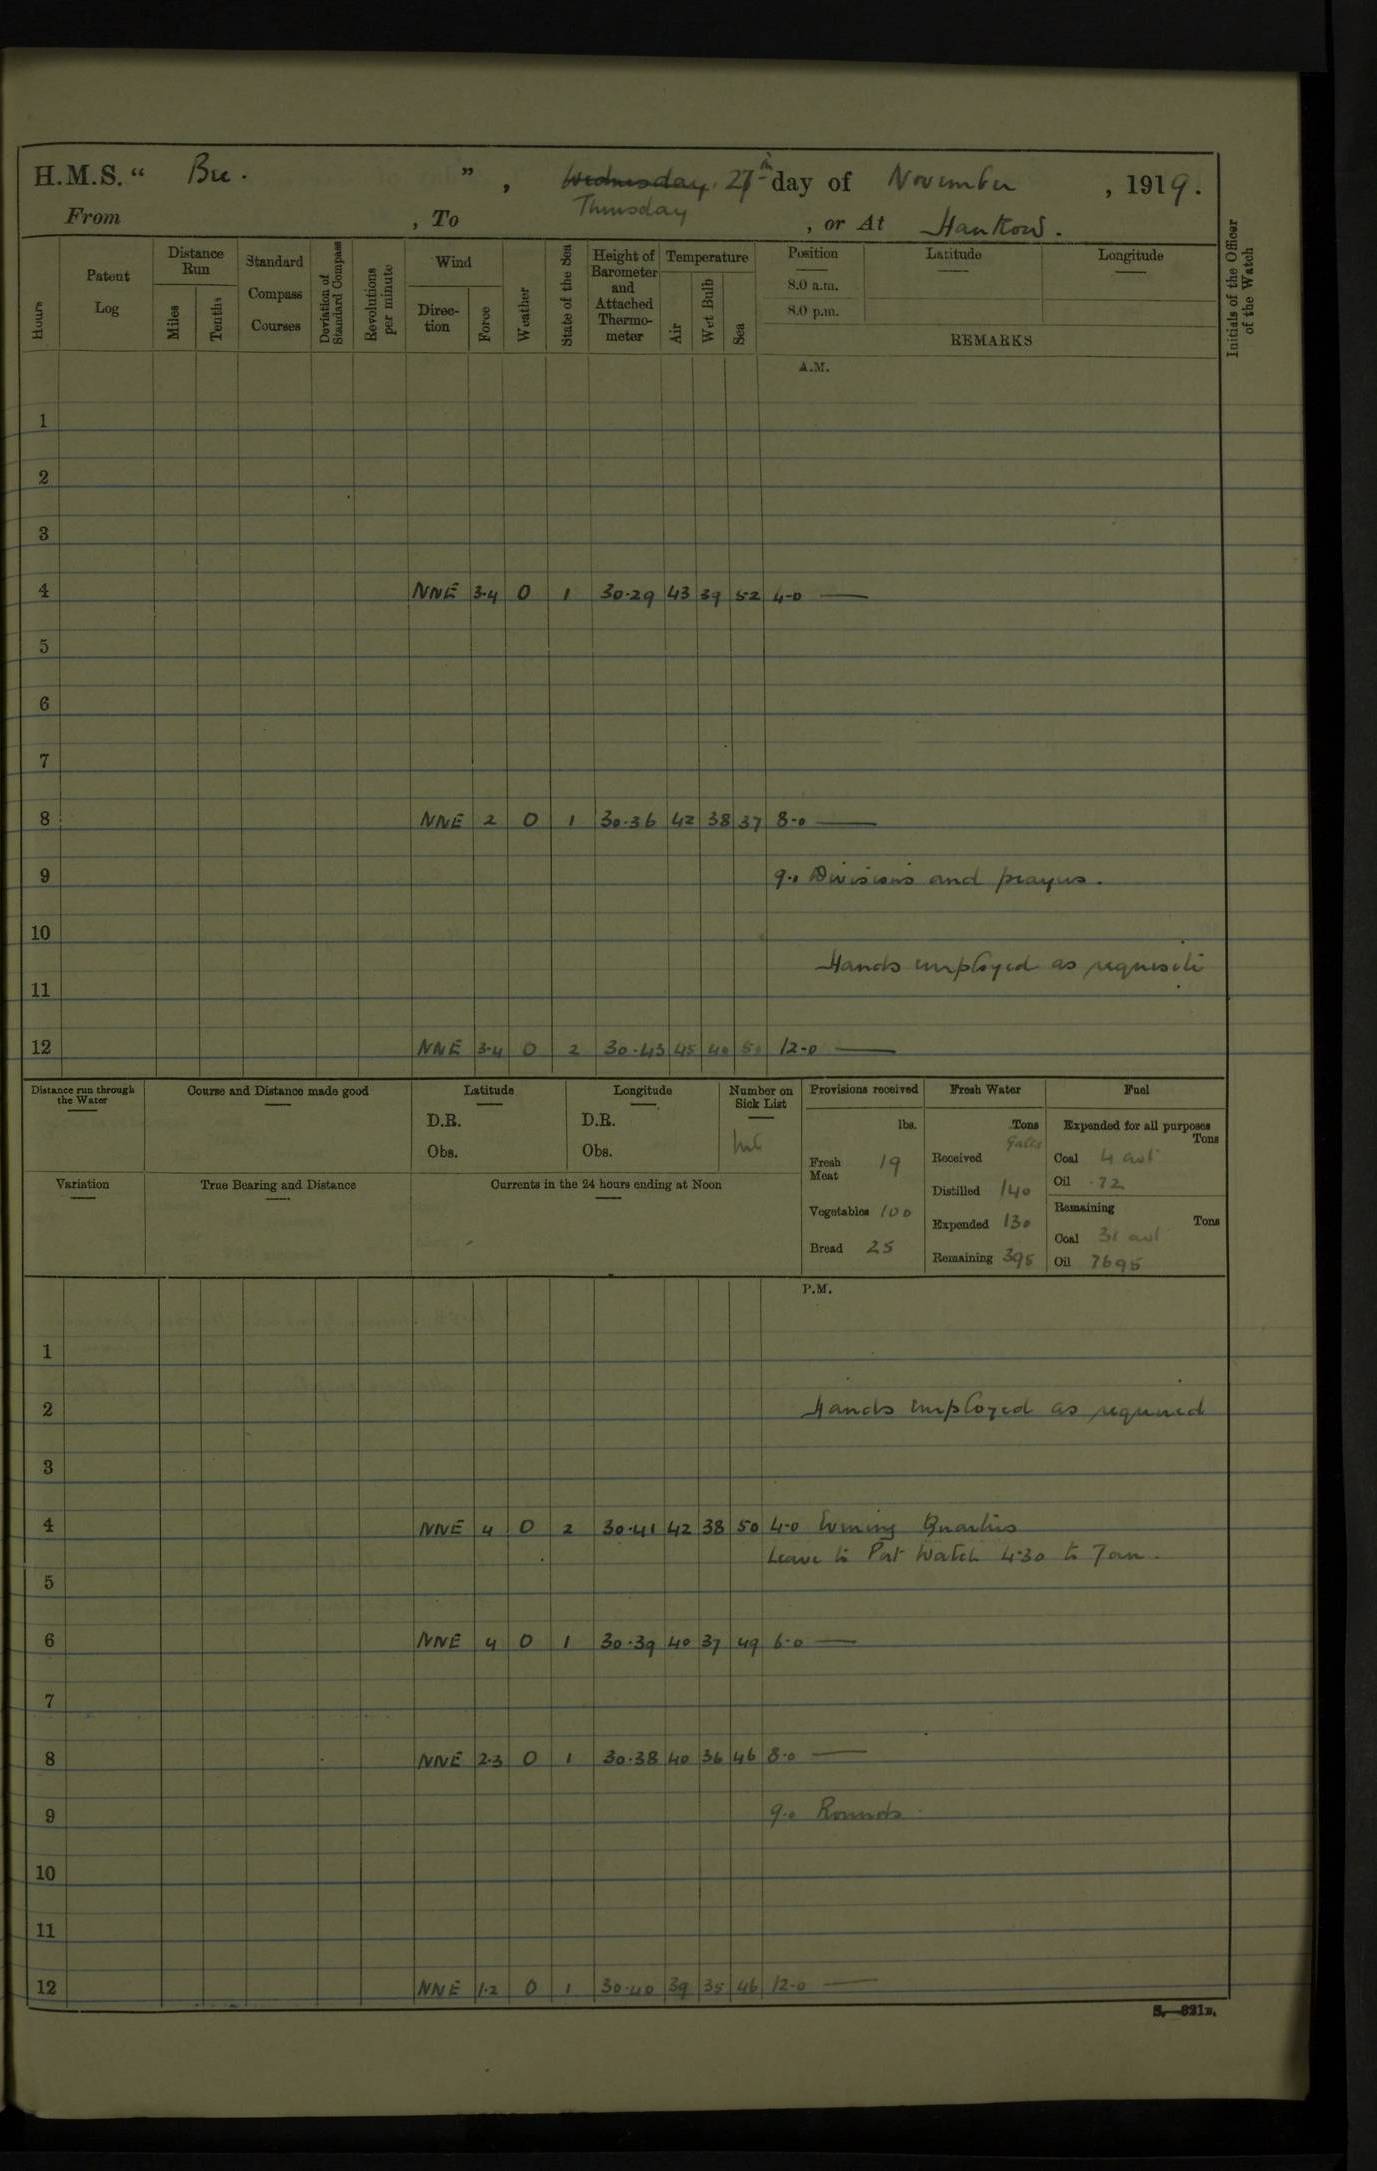 H.M.S. “ Bee. ” , Wednesday 27th day of November , 1919.
Thursday
From , To , or At Hankow.
Hours
Patent Log
Distance Run
Miles
Tenths
Standard Compass Courses
Deviation of Standard Compass
Revolutions per minute
Wind
Direction
Force
Weather
State of the Sea
Height of Barometer and Attached Thermometer
Temperature
Air
Wet Bulb
Sea
Position
8.0 a.m.
8.0 p.m.
Latitude
Longitude
REMARKS
Initials of the Officer of the Watch
A.M.
1
2
3
4 NNE 3·4 0 1 30·29 43 39 52 4-0 —
5
6
7
8 NNE 2 0 1 30·36 42 38 37 8-0 —
9 9.0 Divisions and prayers.
10
Hands employed as requisite
11
12 NNE 3·4 0 2 30·43 45 40 50 12-0 —
Distance run through the Water
Course and Distance made good
Latitude
D.R.
Obs.
Longitude
D.R.
Obs.
Number on Sick List
Nil
Provisions received
lbs.
Fresh Meat 19
Vegetables 100
Bread 25
Fresh Water
Tons
Galls
Received
Distilled 140
Expended 130
Remaining 395
Fuel
Expended for all purposes
Tons
Coal 4 cwt
Oil ·72
Remaining
Tons
Coal 31 cwt
Oil 7695
Variation
True Bearing and Distance
Currents in the 24 hours ending at Noon
P.M.
1
2 Hands employed as required
3
4 NNE 4 0 2 30·41 42 38 50 4-0 Evening Quarters
Leave to Port Watch 4·30 to 7am.
5
6 NNE 4 0 1 30·39 40 37 49 6-0 —
7
8 NNE 2·3 0 1 30·38 40 36 46 8-0 —
9 9.0 Rounds.
10
11
12 NNE 1·2 0 1 30·40 39 35 46 12-0 —
S. 321B.